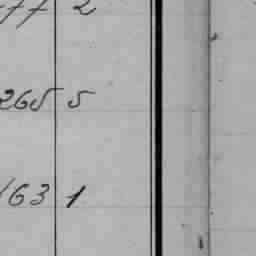 77 2
265 5
163 1